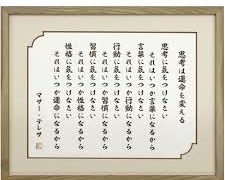 思考は運命を変える
思考に気をつけなさい
それはいつか言葉になるから
言葉に気をつけなさい
それはいつか行動になるから
行動に気をつけなさい
それはいつか習慣になるから
習慣に気をつけなさい
それはいつか性格になるから
性格に気をつけなさい
それはいつか運命になるから
マザー・テレサ